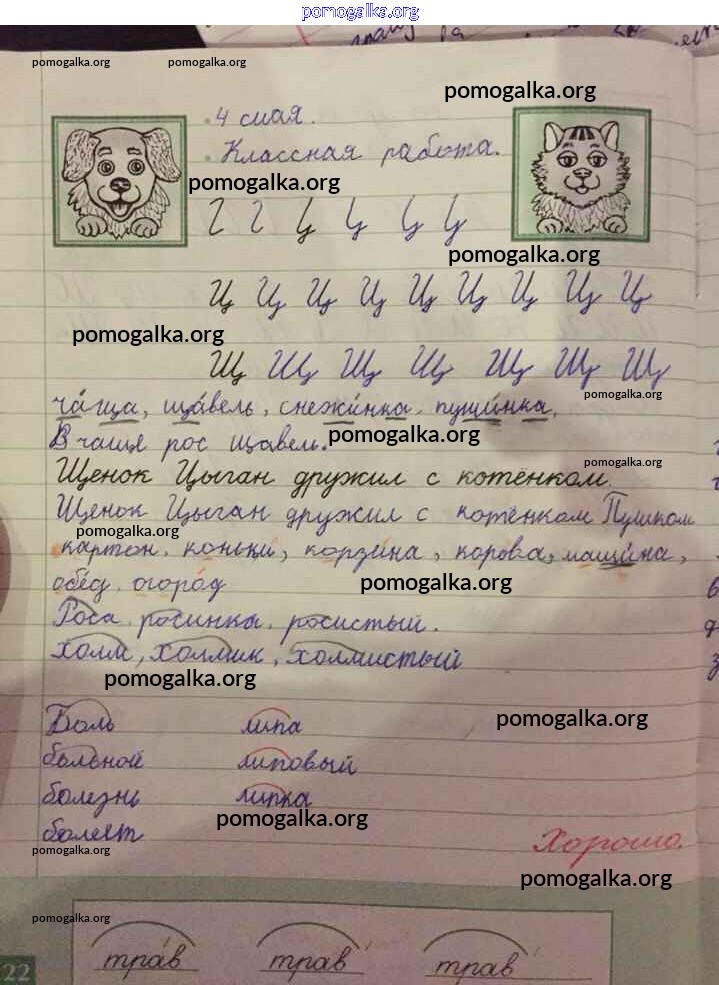 pomogalka.org
pomogalka.org pomogalka.org
pomogalka.org
4 мая.
Классная работа.
pomogalka.org
pomogalka.org
Ц Ц Ц Ц Ц Ц Ц Ц Ц
pomogalka.org
Щ Щ Щ Щ Щ Щ Щ
pomogalka.org
ча́ща, ща́вель, снежи́нка, пуши́нка.
В чаще рос щавель.
pomogalka.org
Щенок Цыган дружил с котёнком.
Щенок Цыган дружил с котёнком Пушком
pomogalka.org
картон, коньки, корзина, корова, маши́на,
обе́д, огоро́д
pomogalka.org
Роса, росинка, росистый.
холм, холмик, холмистый
pomogalka.org
Боль липа
pomogalka.org
больной липовый
болезнь липка
pomogalka.org
болеет
Хорошо.
pomogalka.org
pomogalka.org
pomogalka.org
тра́в трав трав
22